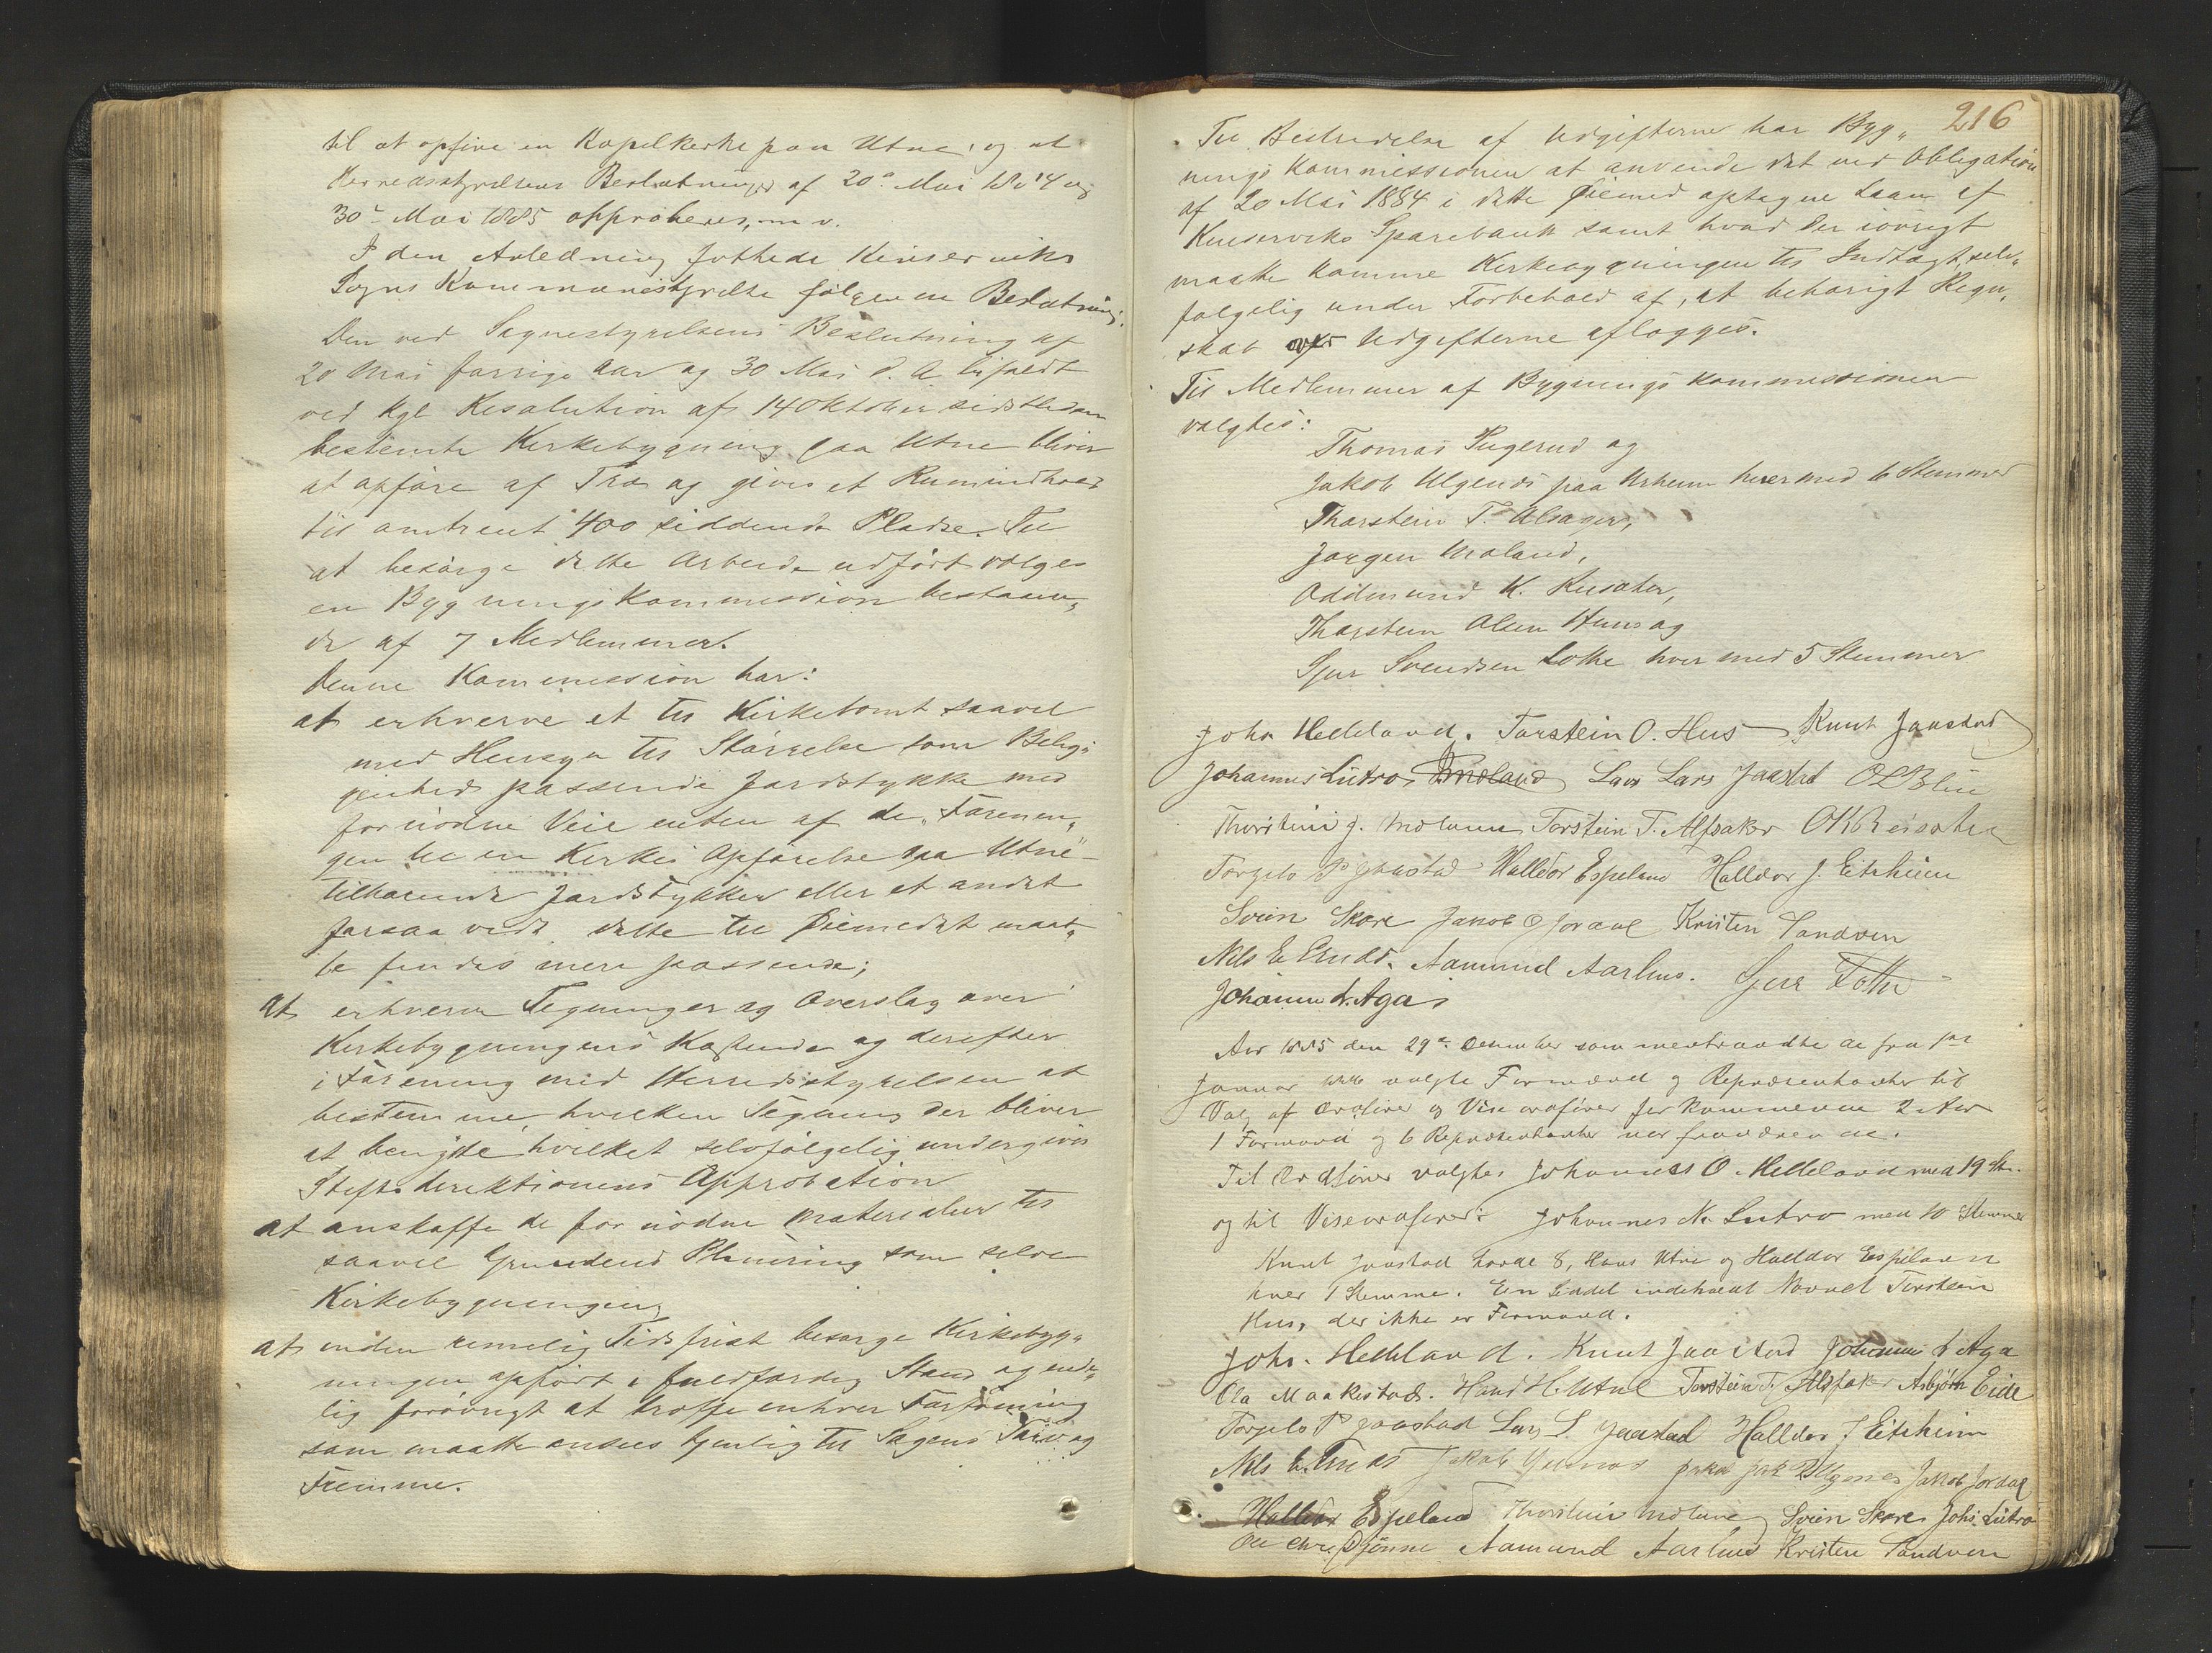 til at opføre en Kapelkirke paa Utne, og at
Herredsstyrelsens Beslutninger af 20de Mai 1884 og
30te Mai 1885 approberes, m. v.
I den Anledning fattede Kinserviks
Sogns Kommunestyrelse følgende Beslutning.
Den ved Sognestyrelsens Beslutning af
20 Mai forrige Aar og 30 Mai d. A. bifaldt
ved Kgl Resolution af 14 Oktober sidstleden
bestemte Kirkebygning paa Utne bliver
at opføre af Træ og gives et Rumindhold
til omtrent 400 siddende Pladse. Til
at besørge dette Arbeide udført vælges
en Bygningskommission bestaaen„
de af 7 Medlemmer.
Denne Kommission har:
at erhverve et til Kirketomt saavel
med Hensyn til Størrelse som Belig„
genhed passende Jordstykke med
fornødne Veie enten af de „Forenin„
gen til en Kirkes Opførelse paa Utne"
tilhørende Jordstykker eller et andet
forsaavidt dette til Øiemedet maat„
te findes mere passende;
at erhverve Tegninger og Overslag over
Kirkebygningens Kostende og derefter
i Forening med Herredsstyrelsen at
bestemme, hvilken Tegning der bliver
at benytte hvilket selvfølgelig undergives
Stiftsdirektionens Approbation
at anskaffe de fornødne Materialier til
saavel Grundens Planering som selve
Kirkebygningen,
at inden rimelig Tidsfrist besørge Kirkebyg„
ningen opført i fuldfærdig Stand og ende„
lig forøvrigt at træffe enhver Forføining
som maatte ansees tjenlig til Sagens Tarv og
Fremme.
216
Til Bestridelse af Udgifterne har Byg„
ningskommissionen at anvende det ved Obligation
af 20 Mai 1884 i dette Øiemed optagne Laan af
Kinserviks Sparebank samt hvad der iøvrigt
maatte komme Kirkebygningen til Indtægt, selv„
følgelig under Forbehold af, at behørigt Regn„
skab over Udgifterne aflægges.
Til Medlemmer af Bygningskommissionen
valgtes:
Thomas og
Jakob Ulgenæs paa hver med 6 Stemmer
Thorstein T. Alsager,
Jørgen Moland,
Oddmund K.
Thorstein Olsen Huus og
Sjur Svendsen Lothe hver med 5 Stemmer
Johs Helleland. Torstein O. Hus Knut Jaastad
Johannes Lutro Lars Lars Jaastad
Thorstein J. Torstein T. Alsaker
Torgils P Jaastad Halldor Espeland Halldor J. Eitrheim
Svein Skare Jakob Jordal Kristen Sandven
Nils E Aamund Aarhus. Sjur Lothe
Johannes L. Aga
Aar 1885 den 29de December sammentraadte de fra 1ste
Januar 1886 valgte Formænd og Repræsentanter til
Valg af Ordfører og Viseordfører for kommende 2 Aar
1 Formand og 6 Repræsentanter var fraværende.
Til Ordfører valgtes Johannes O. Helleland med 19 St.
og til Viseordfører: Johannes N. Lutro med 10 Stemmer
Knut Jaastad havde 8, Hans Utne og Halldor Espeland
hver 1 Stemme. En Seddel indeholdt Navnet Torstein
Hus, der ikke er Formand.
Johs. Helleland. Knut Jaastad Johannes L Aga
Ola Maakestad. Hans H. Utne Torstein T. Alsaker Asbjørn Eide
Torgils P Jaastad Lars L. Jaastad Halldor J Eitrheim
Nils E. Jakob Jakob Jordal
Halldor Espeland Thorstein Svein Skare Johs. Lutro
Djønne Aamund Aarhus Kristen Sandven